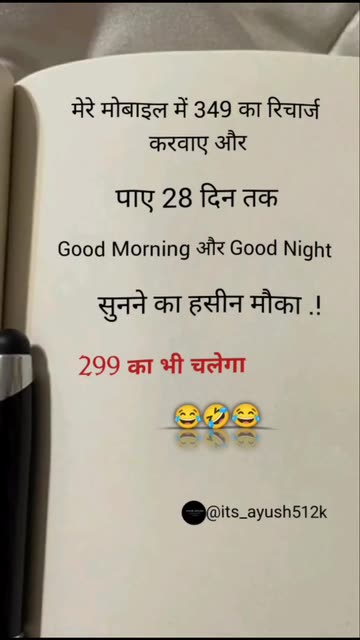 मेरे मोबाइल में 349 का रिचार्ज
करवाए और
पाए 28 दिन तक
Good Morning और Good Night
सुनने का हसीन मौका .!
299 का भी चलेगा
😂🤣😂
@its_ayush512k